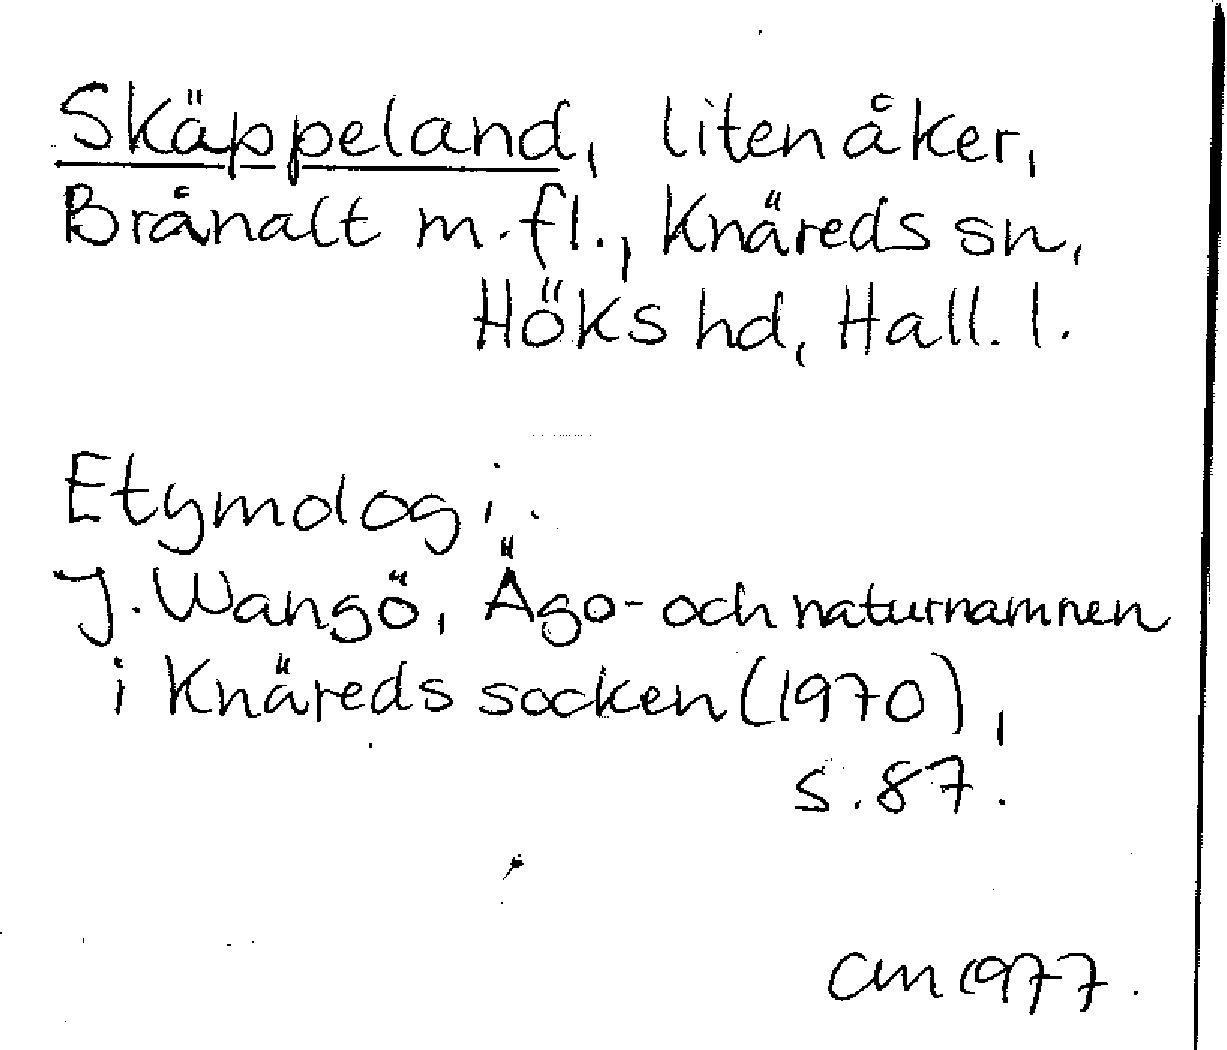 Skäppeland, liten åker,
Brånalt m.fl., Knäreds sn,
Höks hd, Hall. l.
Etymologi.
J. Wangö, Ägo- och naturnamnen
i Knäreds socken (1970),
s. 87.
CM 1977.